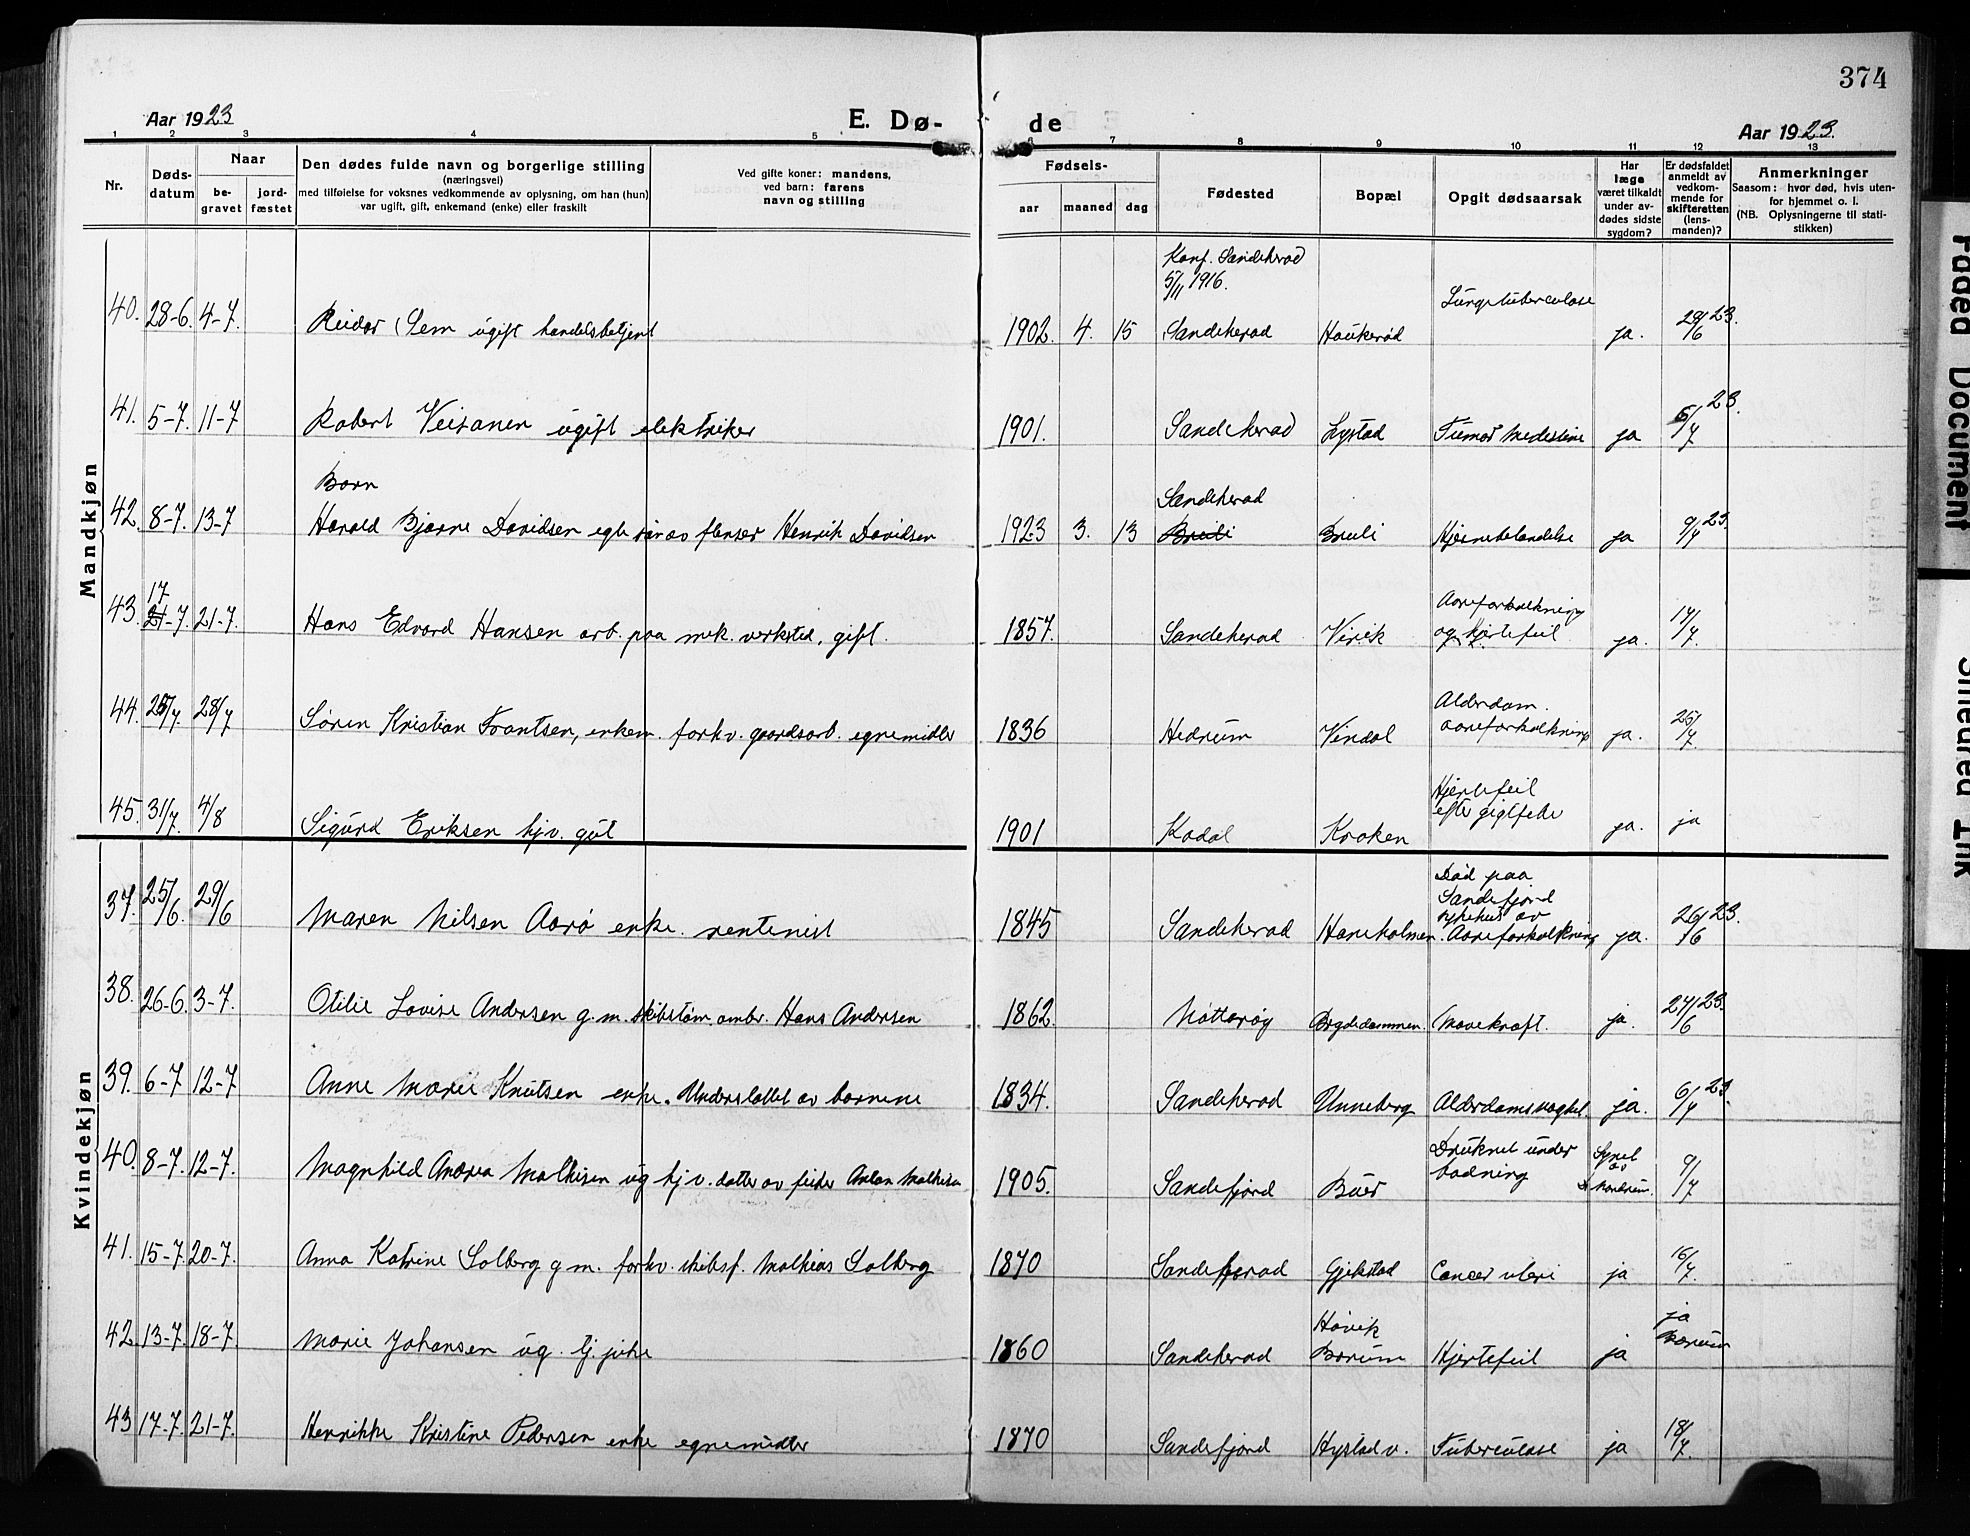 374
Aar 1923
E. Dø- de
Aar 1923.
1 2 3 4 5 6 7 8 9 10 11 12 13
Nr.
Døds-
datum
Naar
be-
gravet
jord-
fæstet
Den dødes fulde navn og borgerlige stilling
(næringsvei)
med tilføielse for voksnes vedkommende av oplysning, om han (hun)
var ugift, gift, enkemand (enke) eller fraskilt
Ved gifte koner: mandens,
ved barn: farens
navn og stilling
Fødsels-
aar maaned dag
Fødested
Bopæl
Opgit dødsaarsak
Har
læge
været tilkaldt
under av-
dødes sidste
sygdom?
Er dødsfaldet
anmeldt av
vedkom-
mende for
skifteretten
(lens-
manden)?
Anmerkninger
Saasom: hvor død, hvis uten-
for hjemmet o. l.
(NB. Oplysningerne til stati-
stikken)
Mandkjøn
Konf. Sandeherad
5/11 1916.
40. 28-6. 4-7. Reidar Sem ugift handelsbetjent 1902. 4. 15 Sandeherad Haukerød Lungetuberculose ja. 29/6 23.
41. 5-7. 11-7 Robert ugift elektriker 1901. Sandeherad Lystad Tumor ja 6/7 23.
Barn
Sandeherad
42. 8-7. 13-7 Harald Bjarne Davidsen egte søn av flenser Henrik Davidsen 1923 3. 13 Breili Breili Hjernebetændelse ja 9/7 23.
17
43. 21-7. 21-7. Hans Edvard Hansen arb. paa mek. verksted, gift. 1857. Sandeherad Virik Aareforkalkning
og hjertefeil ja. 17/7.
44. 25/7. 28/7 Søren Kristian Frantsen, enkem. forhv. gaardsarb. egnemidler 1836 Hedrum Vindal Alderdom.
aareforkalkning ja. 25/7.
45. 31/7. 4/8 Sigurd Eriksen hjv. gut 1901 Kodal Kroken Hjertefeil
efter gigtfeber ja. ja
Kvindekjøn
37. 25/6. 29/6 Maren Nilsen Aarø enke. rentenist 1845 Sandeherad Hareholmen. Død paa
Sandefjord
sykehus av
Aareforkalkning ja. 26/6 23.
38. 26-6. 3-7. Otilie Lovise Andersen g.m. skibstøm. ombr. Hans Andersen 1862. Nøtterøy Bygdedammen. Mavekræft. ja. 27/6 23.
39. 6-7 12-7 Anne Marie Knutsen enke. Understøttet av barnene 1834. Sandeherad Unneberg Alderdomssvaghet. ja. 6/7 23.
40. 8-7. 12-7. Magnhild Andrea Mathisen ug hjv. datter av feier Anton Mathisen 1905. Sandefjord Buer Druknet under
badning Synet
av
9/7
41. 15-7. 20-7. Anna Katrine Solberg g m. forhv. skibsf. Mathias Solberg 1870 Sandeherad Gjekstad Cancer uteri ja 16/7.
42. 13-7. 18-7. Marie Johansen ug. tj. pike 1860 Sandeherad Høvik
Bærum Hjertefeil ja ja
Bærum
43 17-7. 21-7. Henrikke Kristine Pedersen enke egnemidler 1870 Sandefjord Hystad v. Tuberculose ja 18/7.
Faded Document
Smeared Ink